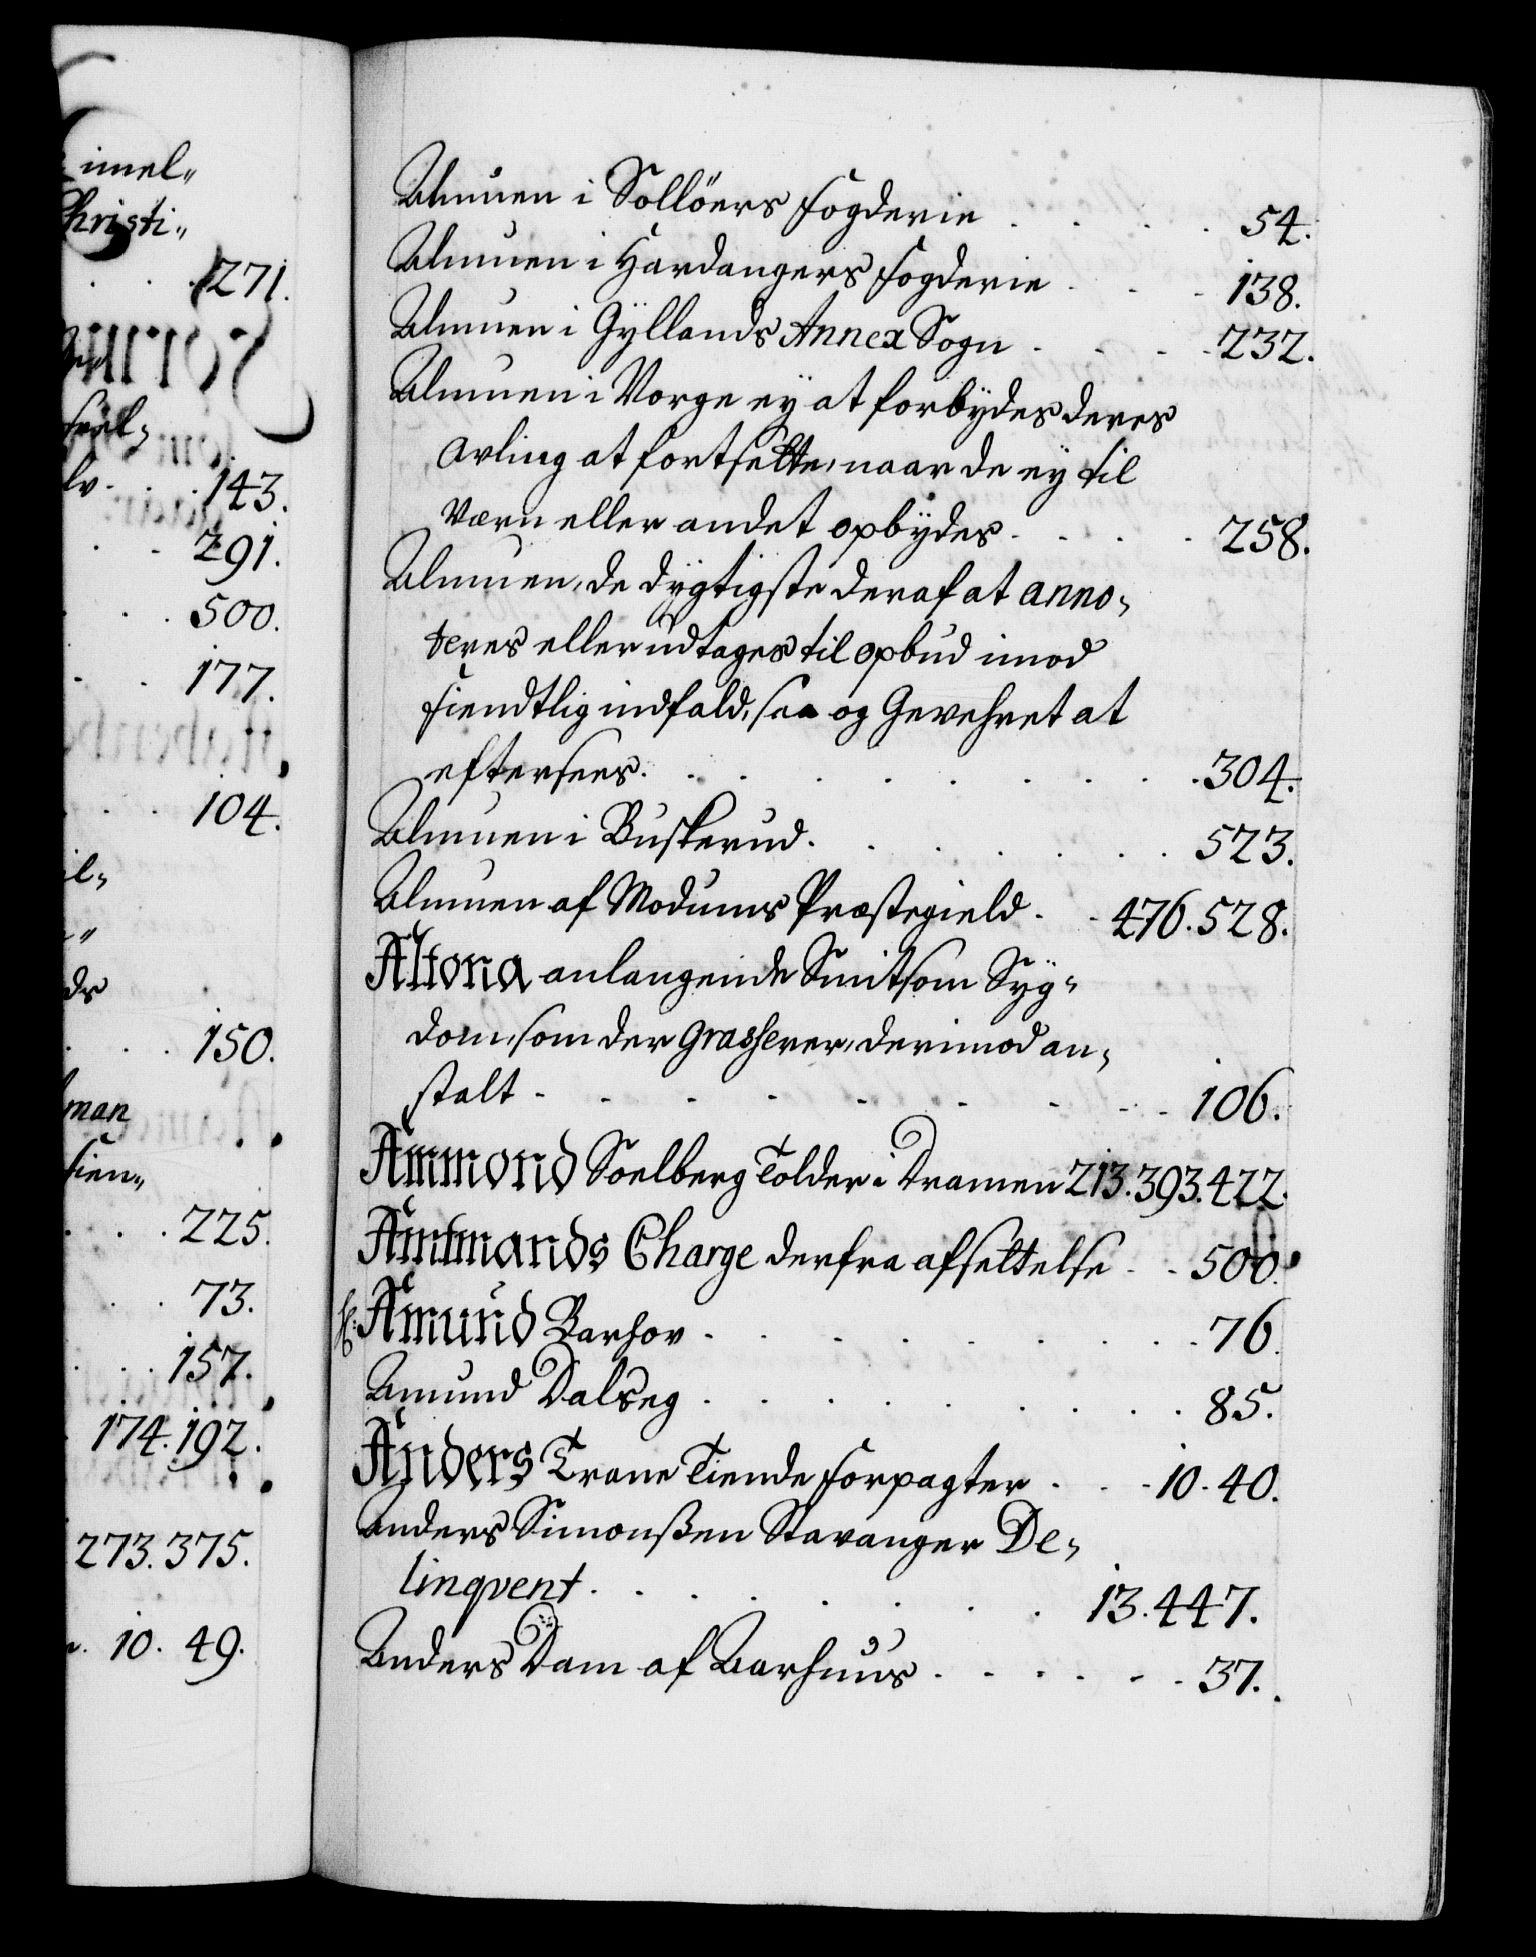 imel„
Christi„
271.
143.
291.
500.
177.
104.
il„
ds
150.
man
tien„
225.
73.
157.
174. 192.
273. 375.
10. 49.
Almuen i Sollöers Fogderie . . . . 54.
Almuen i Hardangers Fogderie . . . 138.
Almuen i Gyllands Annex Sogn . . . . 232.
Almuen i Norge ey at forbydes deres
Avling at fortsette, naar de ey til
Værn eller andet opbydes . . . . 258.
Almuen, de dygtigste deraf at anno„
teres eller udtages til opbud imod
fiendtlig indfald, saa og Gevehret at
eftersees. . . . . . . . . 304.
Almuen i Buskerud . . . . . . . 523.
Almuen af Modums Præstegield . . 476. 528.
Altona anlangende Smitsom Syg„
dom, som der Grasserer, derimod an„
stalt . . . . . . . . . 106.
Ammond Soelberg Tolder i Dramen 213. 393. 422.
Amtmands Charge derfra afsettelse . . 500.
Amund Barhov . . . . . . . . 76.
Amund Dalseg . . . . . . . . 85.
Anders Trane Tiende Forpagter . . . 10. 40.
Anders Simonßen Stavanger De„
linqvent . . . . . . . 13. 447.
Anders Dam af Aarhuus . . . . . . 37.